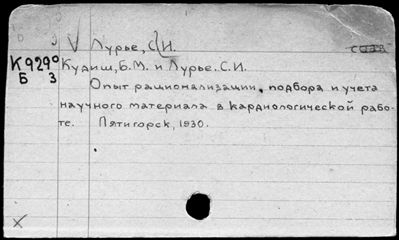 V Лурье, С.И.
К9290 Кудиш, Б.М. и Лурье. С.И.
Б 3
Опыт рационализации, подбора и учета
научного материала в кардиологической рабо-
те. Пятигорск, 1930.